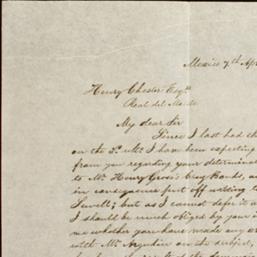 Mexico 7th Ap
Henry Chester Esqr.
Real del Monte
My dear Sir
Since I last had th
on the 3d. ulto. I have been expecting
from you regarding your determinat
to Mr. Henry Gros's Bonds, a
in consequence put off writing to
Sewell; but as I cannot defer it a
I should be much obliged by your i
me whether you have made any a
with Mr. on the subject,